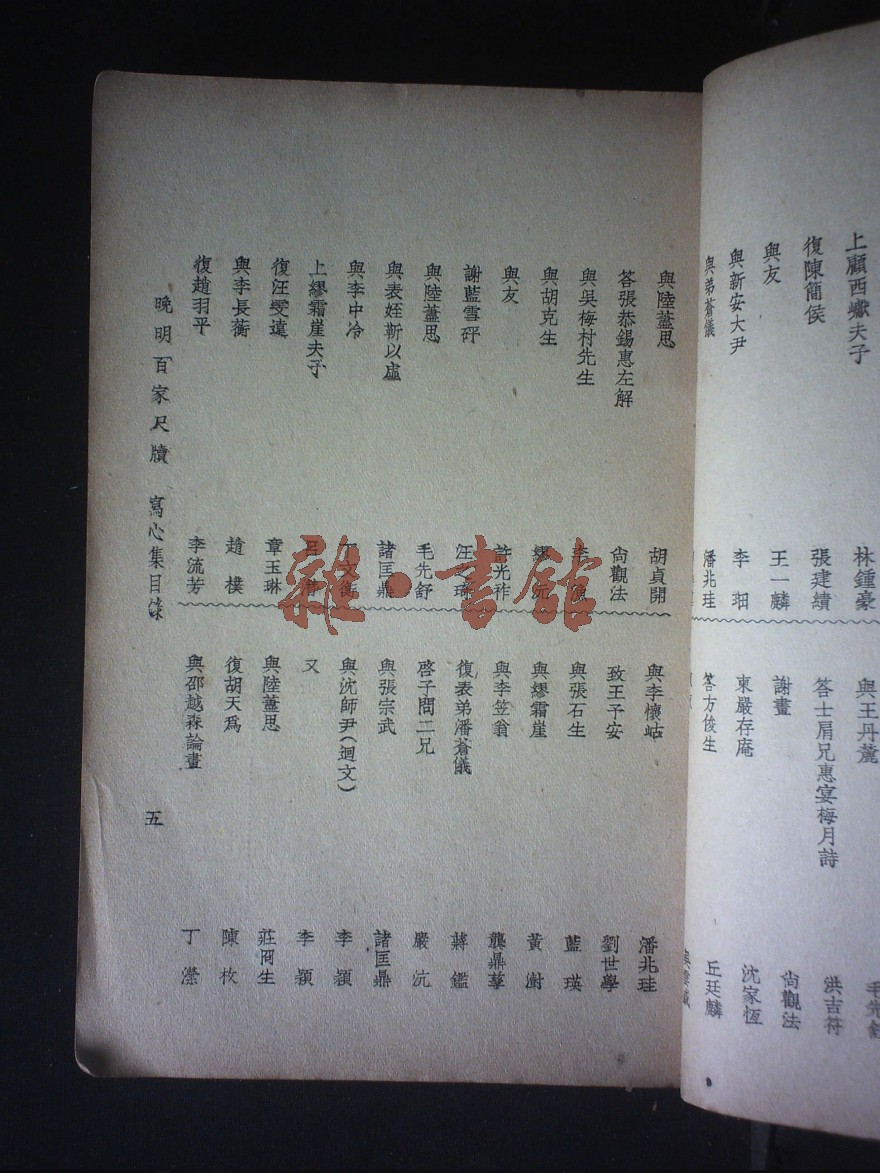 上顧西巘夫子 林鍾豪
復陳簡侯 張建績
與友 王一麟
與新安大尹 李 𤱶
與弟蒼儀 潘兆珪
與王丹麓
答士肩兄惠宴梅月詩 洪吉符
謝畫 尙觀法
柬嚴存庵 沈家恆
答方俊生 丘廷麟
與陸藎思 胡貞開
答張恭錫惠左解 尙觀法
與吳梅村先生 李
與胡克生 繆沅
與友 許光祚
謝藍雪砰 汪之琦
與陸藎思 毛先舒
與表姪靳以虛 諸匡鼎
與李中冷
上繆霜崖夫子
復汪雯遠 章玉琳
與李長蘅 趙 樸
復趙羽平 李流芳
與李懷岵 潘兆珪
致王予安 劉世學
與張石生 藍 瑛
與繆霜崖 黃 澍
與李笠翁 龔鼎孳
復表弟潘蒼儀 蔣 鑑
啓子問二兄 嚴 沆
與張宗武 諸匡鼎
與沈師尹(迴文) 李 穎
又 李 穎
與陸藎思 莊冏生
復胡天爲 陳 枚
與邵越森論畫 丁 灤
晚明百家尺牘 寫心集目錄
五
雜·書館